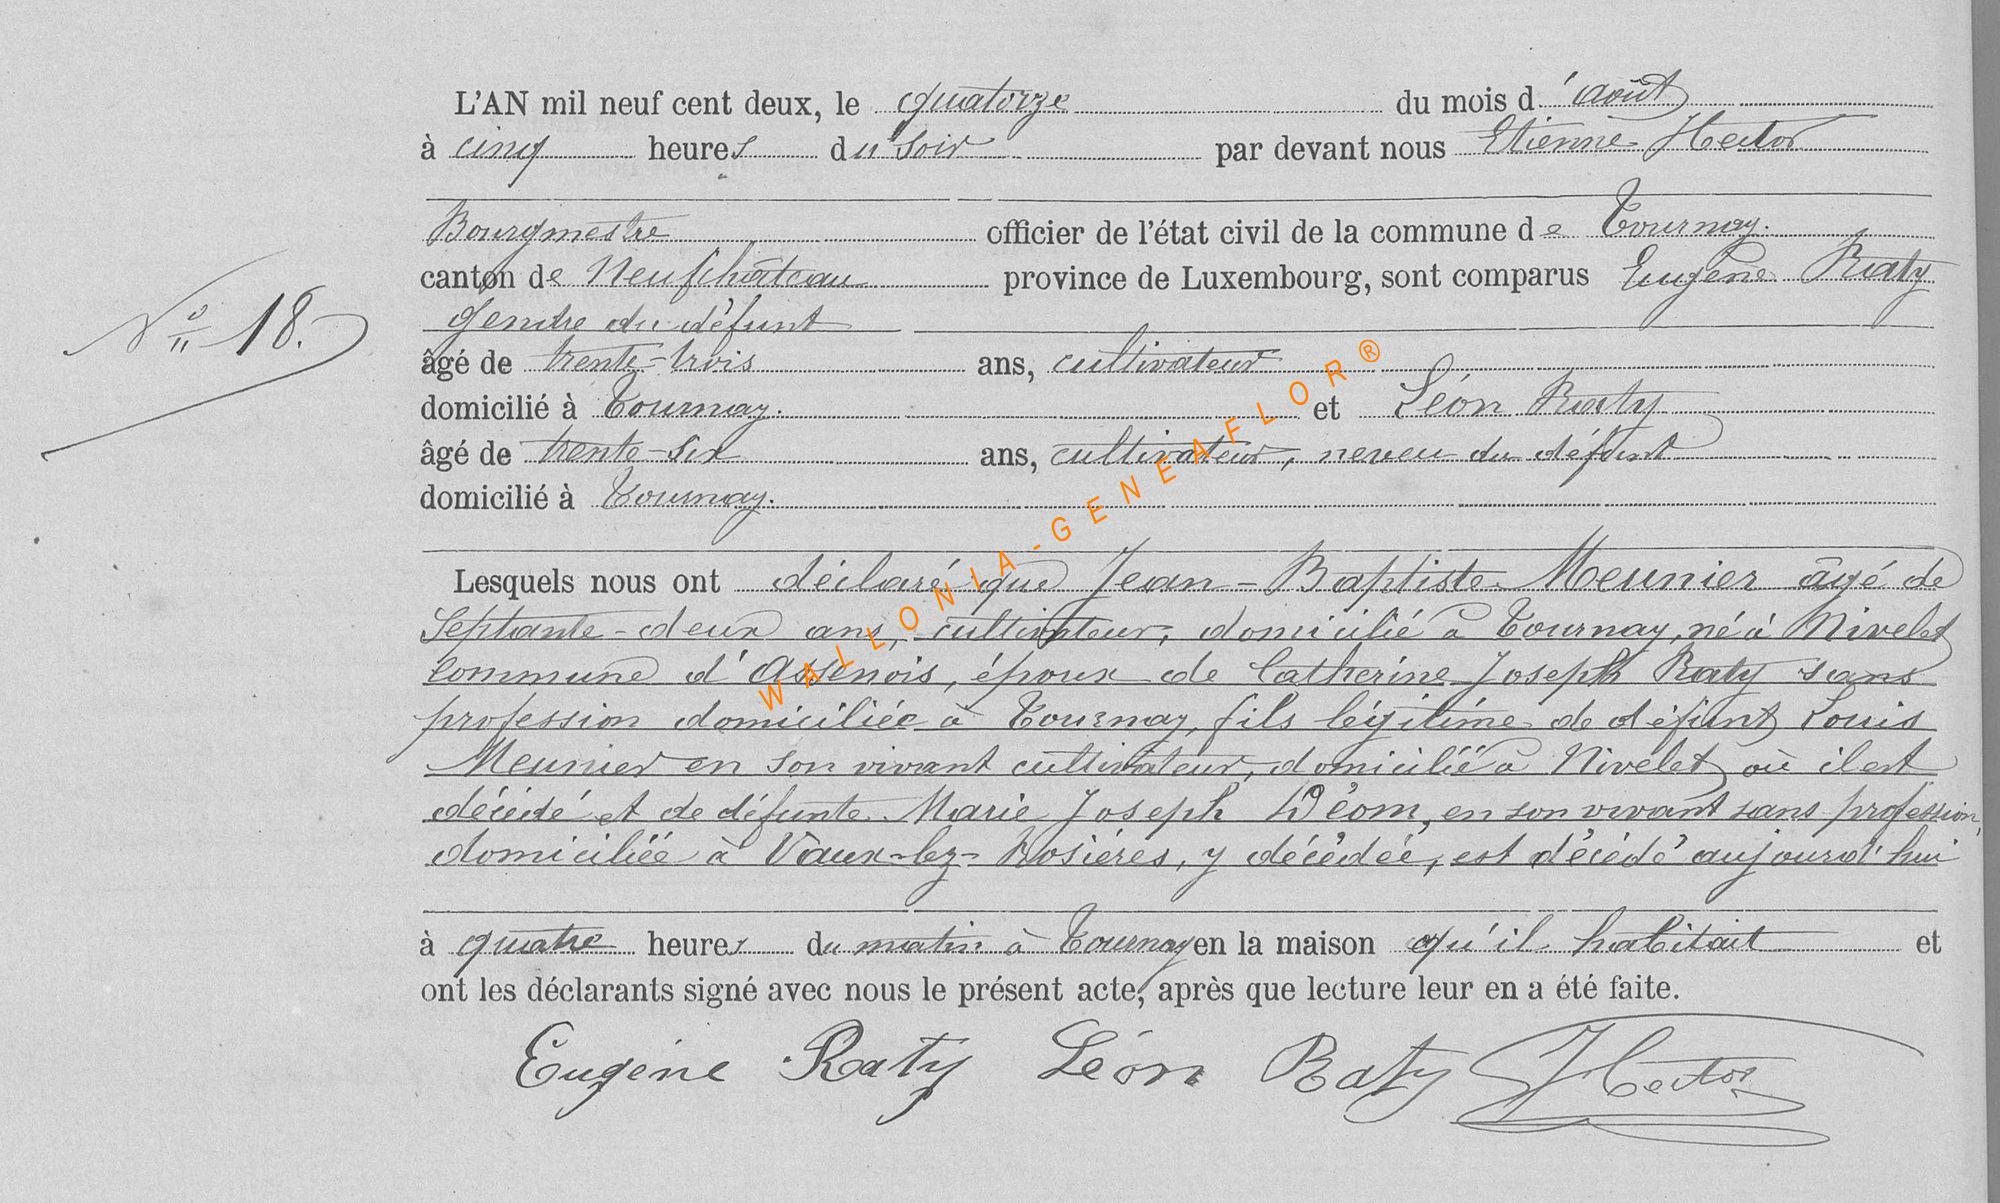 L'AN mil neuf cent deux, le quatorze du mois d'août
à cinq heures du soir par devant nous Etienne Hector
Bourgmestre officier de l'état civil de la commune de Tournay.
canton de Neufchâteau province de Luxembourg, sont comparus Eugène Raty
gendre du défunt
N° 18.
âgé de trente-trois ans, cultivateur
domicilié à Tournay. et Léon Raty
âgé de trente-six ans, cultivateur, neveu du défunt
domicilié à Tournay.
Lesquels nous ont déclaré que Jean-Baptiste Meunier âgé de
septante-deux ans, cultivateur, domicilié à Tournay, né à Nivelet
commune d'Assenois, époux de Catherine Joseph Raty sans
profession domiciliée à Tournay, fils légitime de défunt Louis
Meunier en son vivant cultivateur, domicilié à Nivelet où il est
décédé et de défunte Marie Joseph Déom, en son vivant sans profession,
domiciliée à Vaux-lez-Rosières, y décédée, est décédé aujourd'hui
à quatre heures du matin à Tournay en la maison qu'il habitait et
ont les déclarants signé avec nous le présent acte, après que lecture leur en a été faite.
Eugène Raty Léon Raty Hector
WALLONIA-GENEAFLOR®